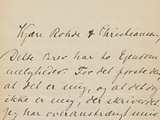 Kjære Rohde & Christiansen,
Dette Brev har to Ejendom-
meligheder. For det første
at det er mig, og at det dog
ikke er mig, der skriver det
jeg har overanstrængt mine